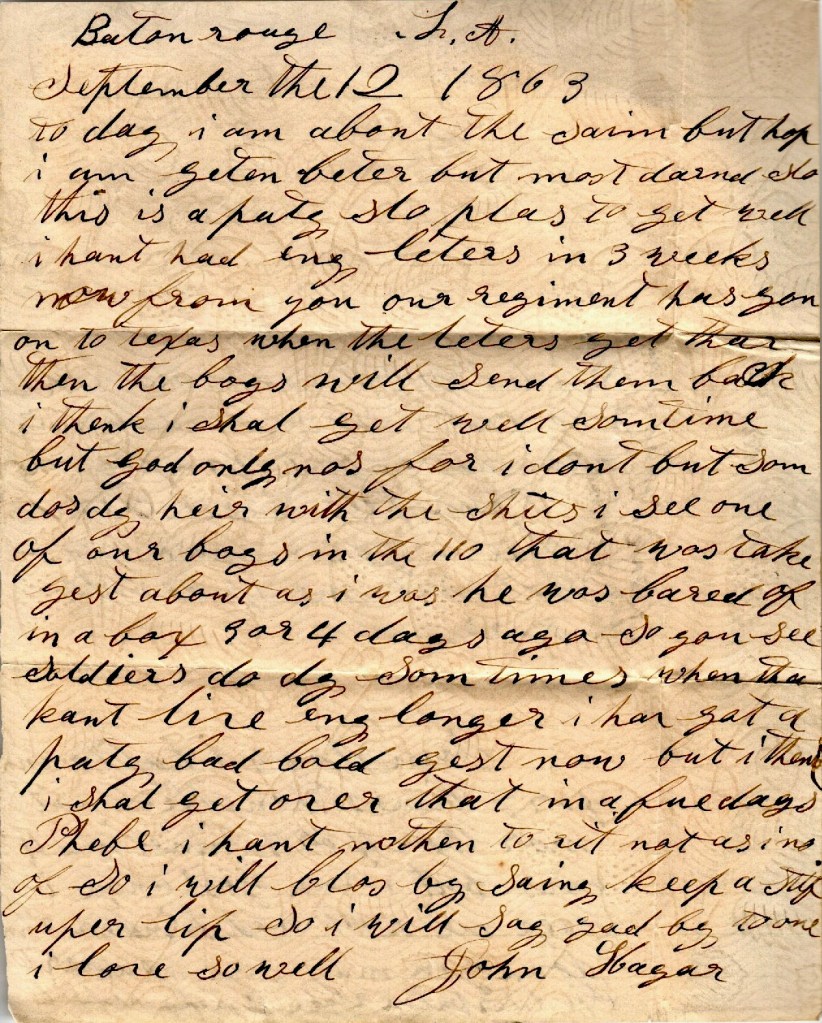 Baton rouge L. A.
September the 12 1863
to day i am about the saim but hop
i am geten beter but most darnd slo
this is a puty slo plas to get well
i hant had eny leters in 3 weeks
now from you our regiment has gon
on to texas when the leters get thar
then the boys will send them back
i thenk i shal get well somtime
but god only nos for i dont but som
dos dy heir with the shits i see one
of our boys in the 110 that was take
gest about as i was he was bared of
in a box 3 or 4 days ago so you see
soldiers do dy som times when tha
kant live eny longer i hav gat a
puty bad cold gest now but i thenk
i shal get over that in a fue days
Phebe i hant nothen to rit not as i no
of so i will clos by saing keep a stif
uper lip so i will say gad by to one
i love so well John Hagar